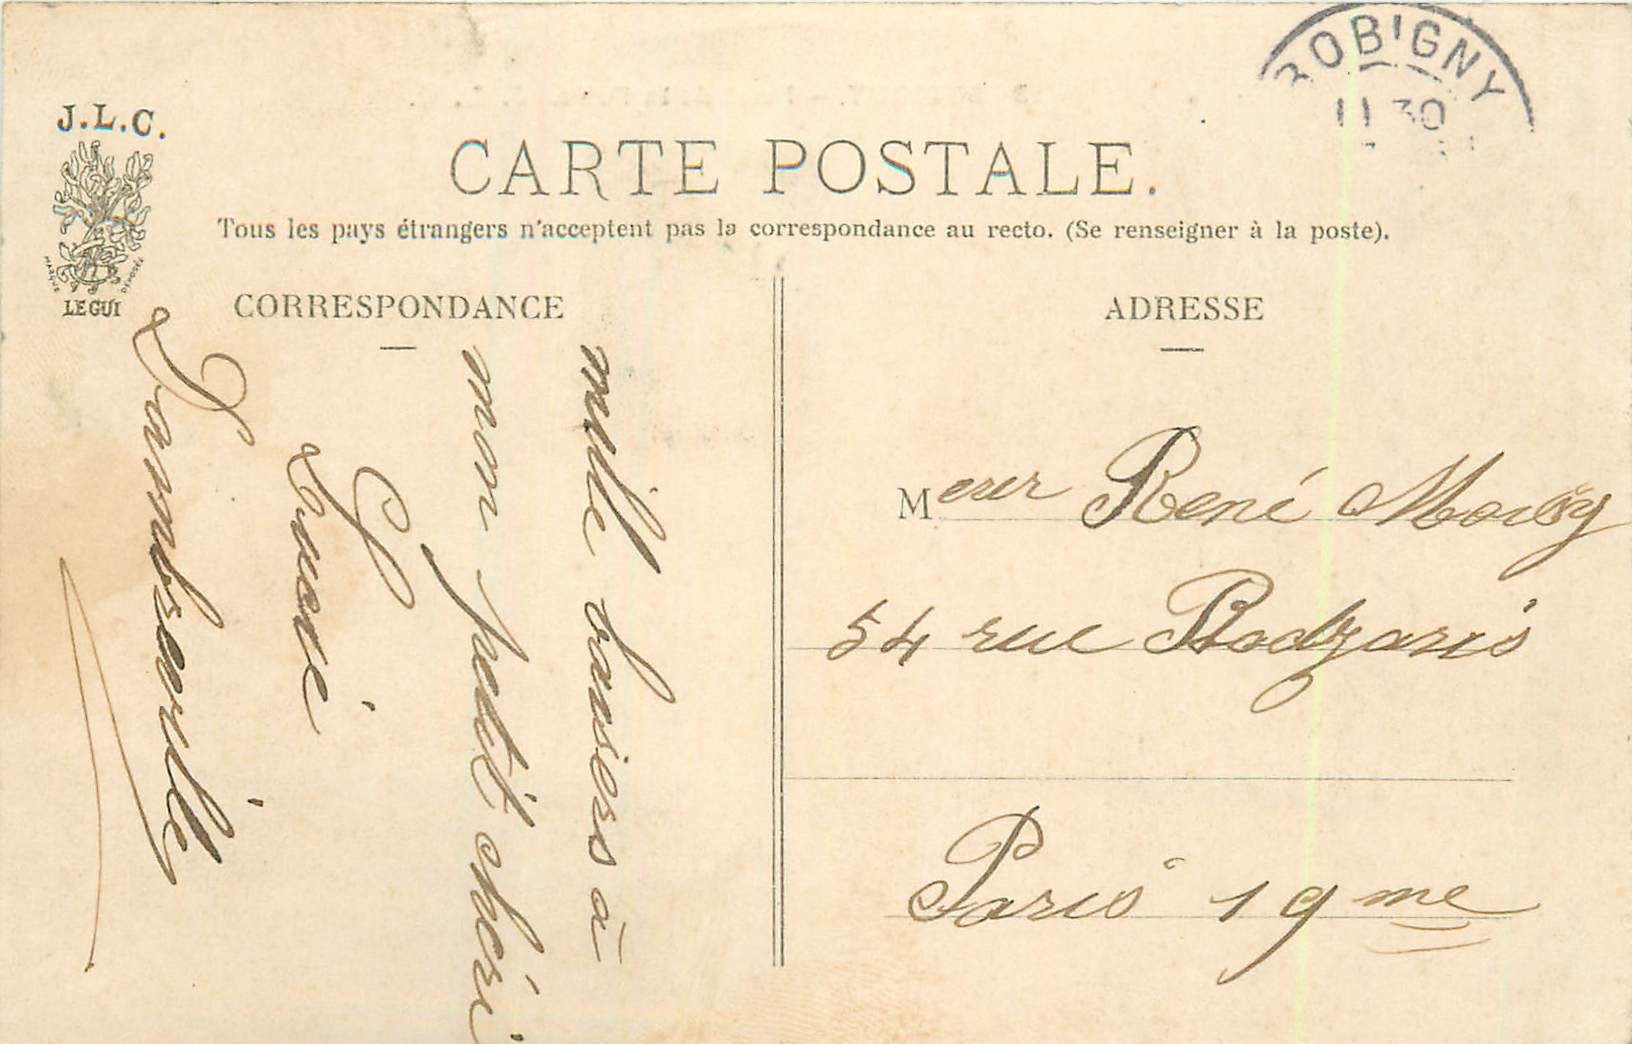 BOBIGNY
11 30
J.L.C.
MARQUE DÉPOSÉE
LE GUI
CARTE POSTALE.
Tous les pays étrangers n'acceptent pas la correspondance au recto. (Se renseigner à la poste).
CORRESPONDANCE
mille baisers à
mon petit chéri
Lucie
Dambreville
ADRESSE
Meur René
54 rue Bodzaris
Paris 19me